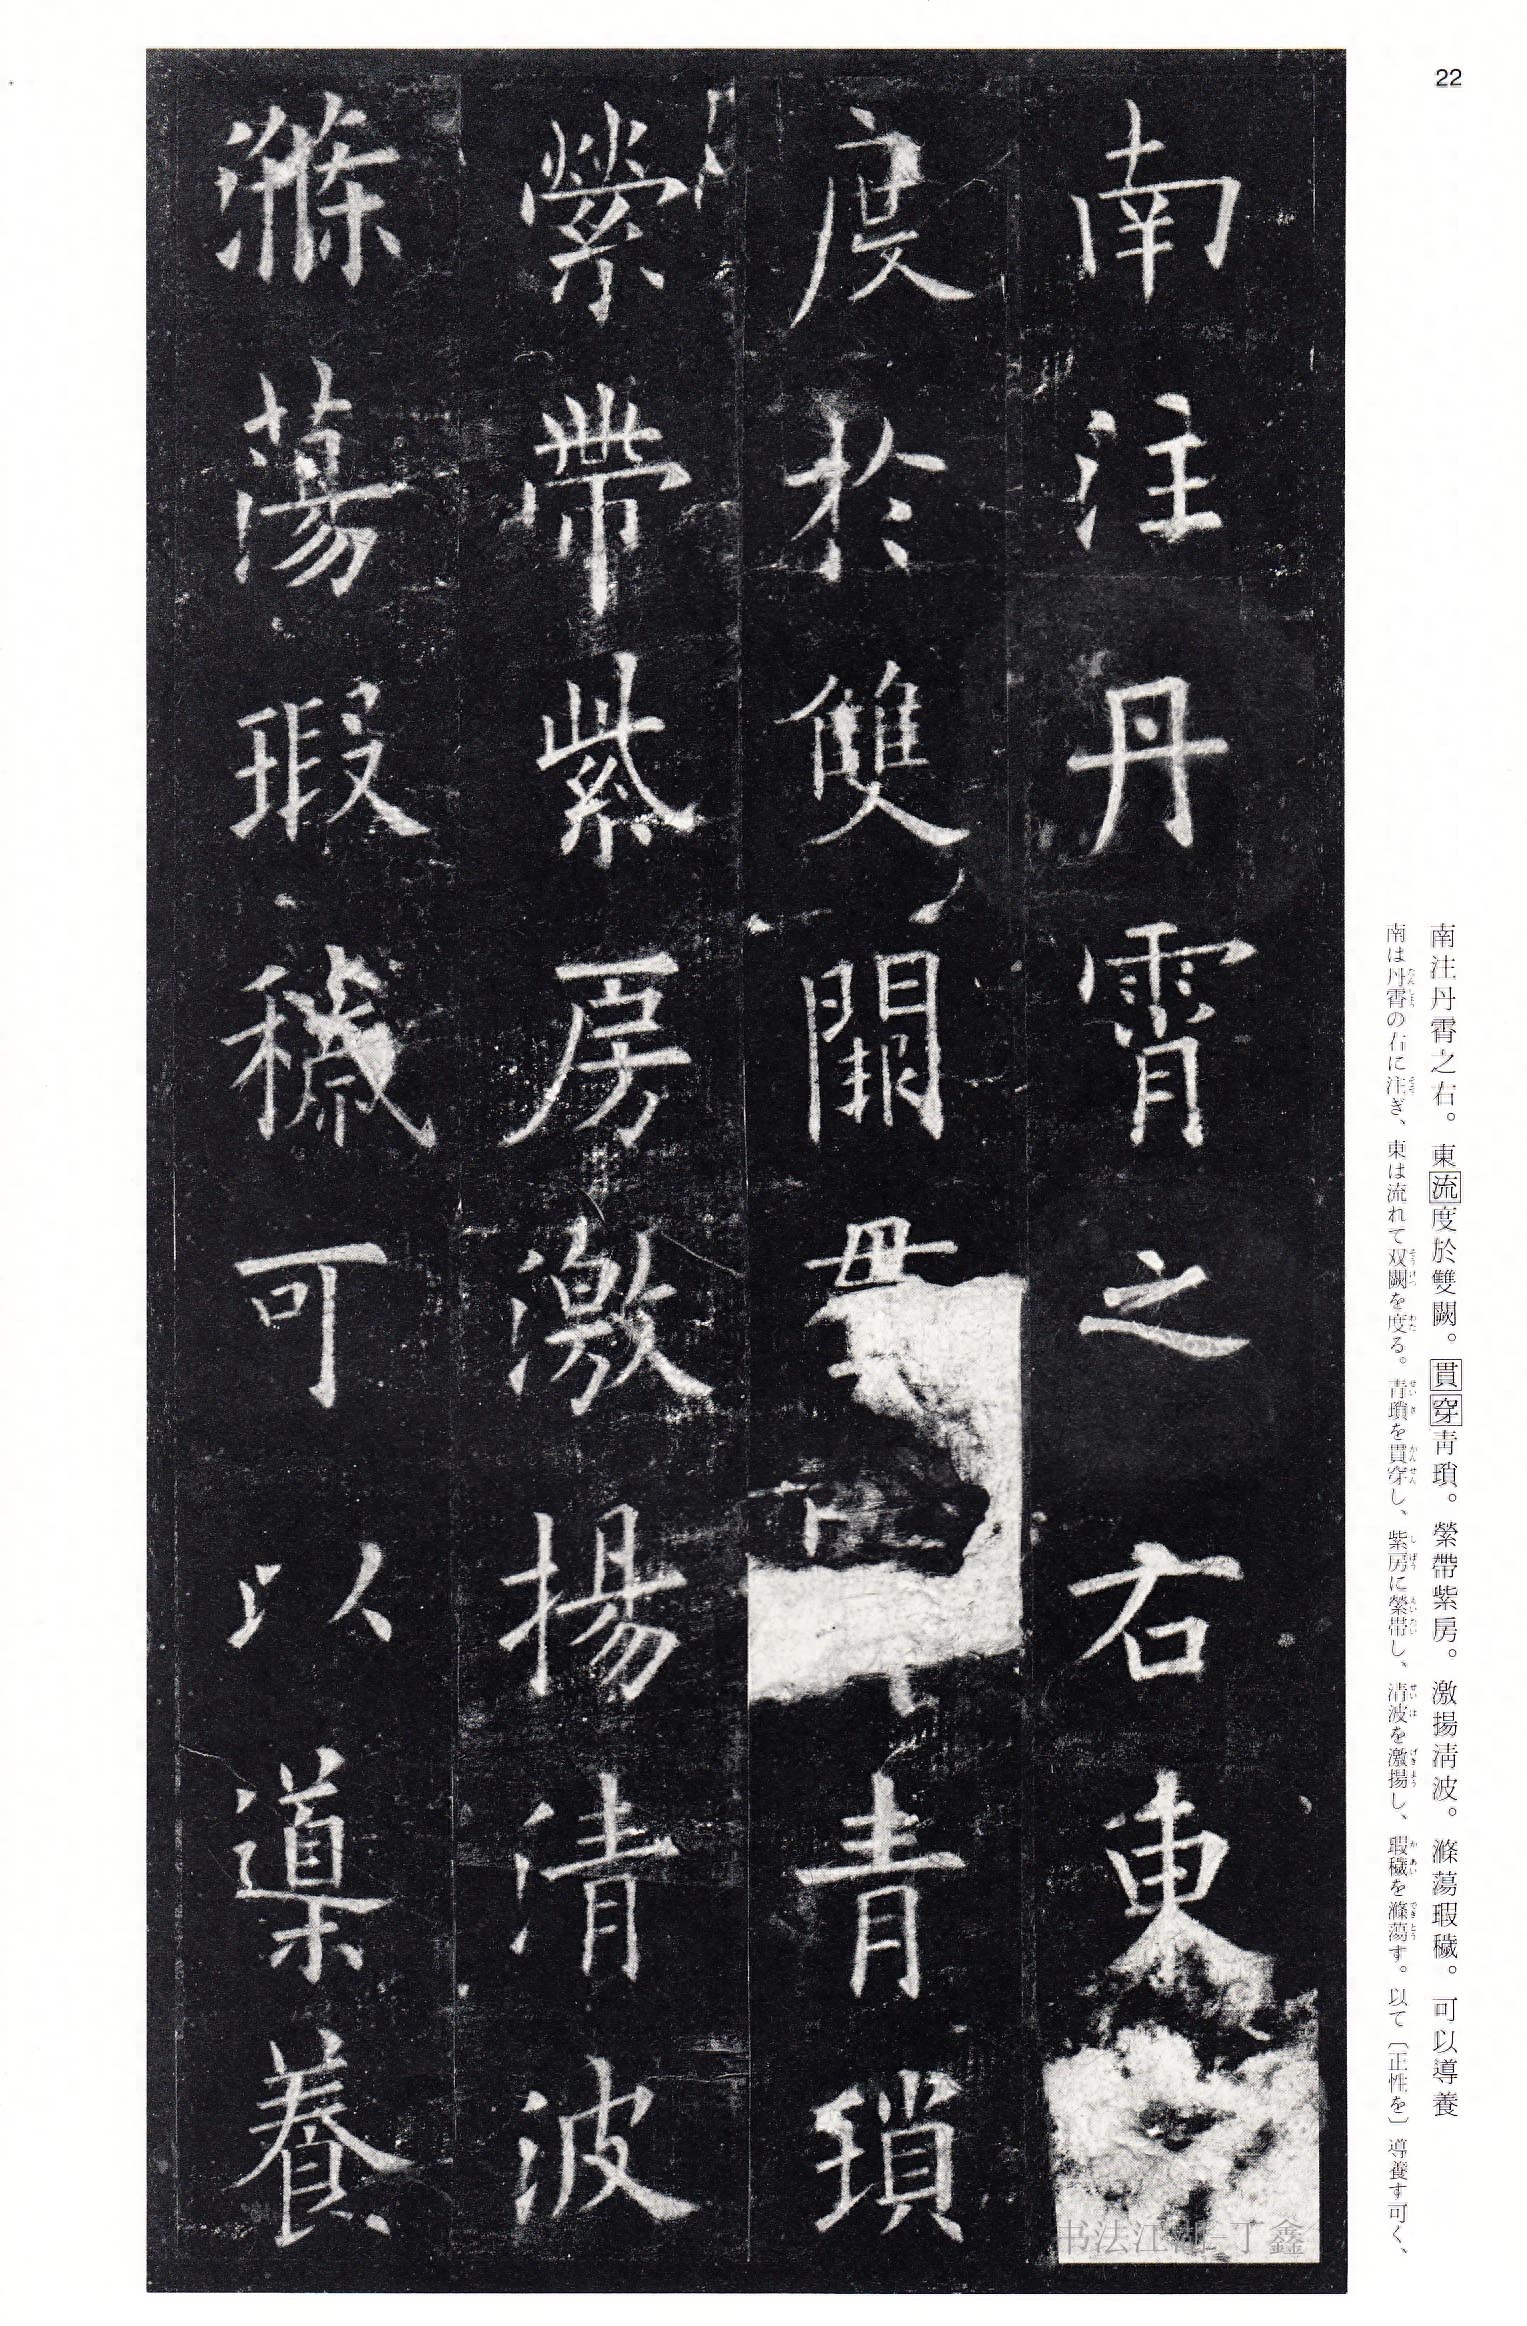 22
南注丹霄之右。東流度於雙闕。貫穿靑瑣。縈帶紫房。激揚淸波。滌蕩瑕穢。可以導養
南は丹霄の右に注ぎ、東は流れて双闕を度る。青瑣を貫穿し、紫房に縈帯し、清波を激揚し、瑕穢を滌蕩す。以て〔正性を〕導養す可く、
南注丹霄之右東
度於雙闕貫青瑣
縈帶紫房激揚清波
滌蕩瑕穢可以導養
书法江湖-丁鑫